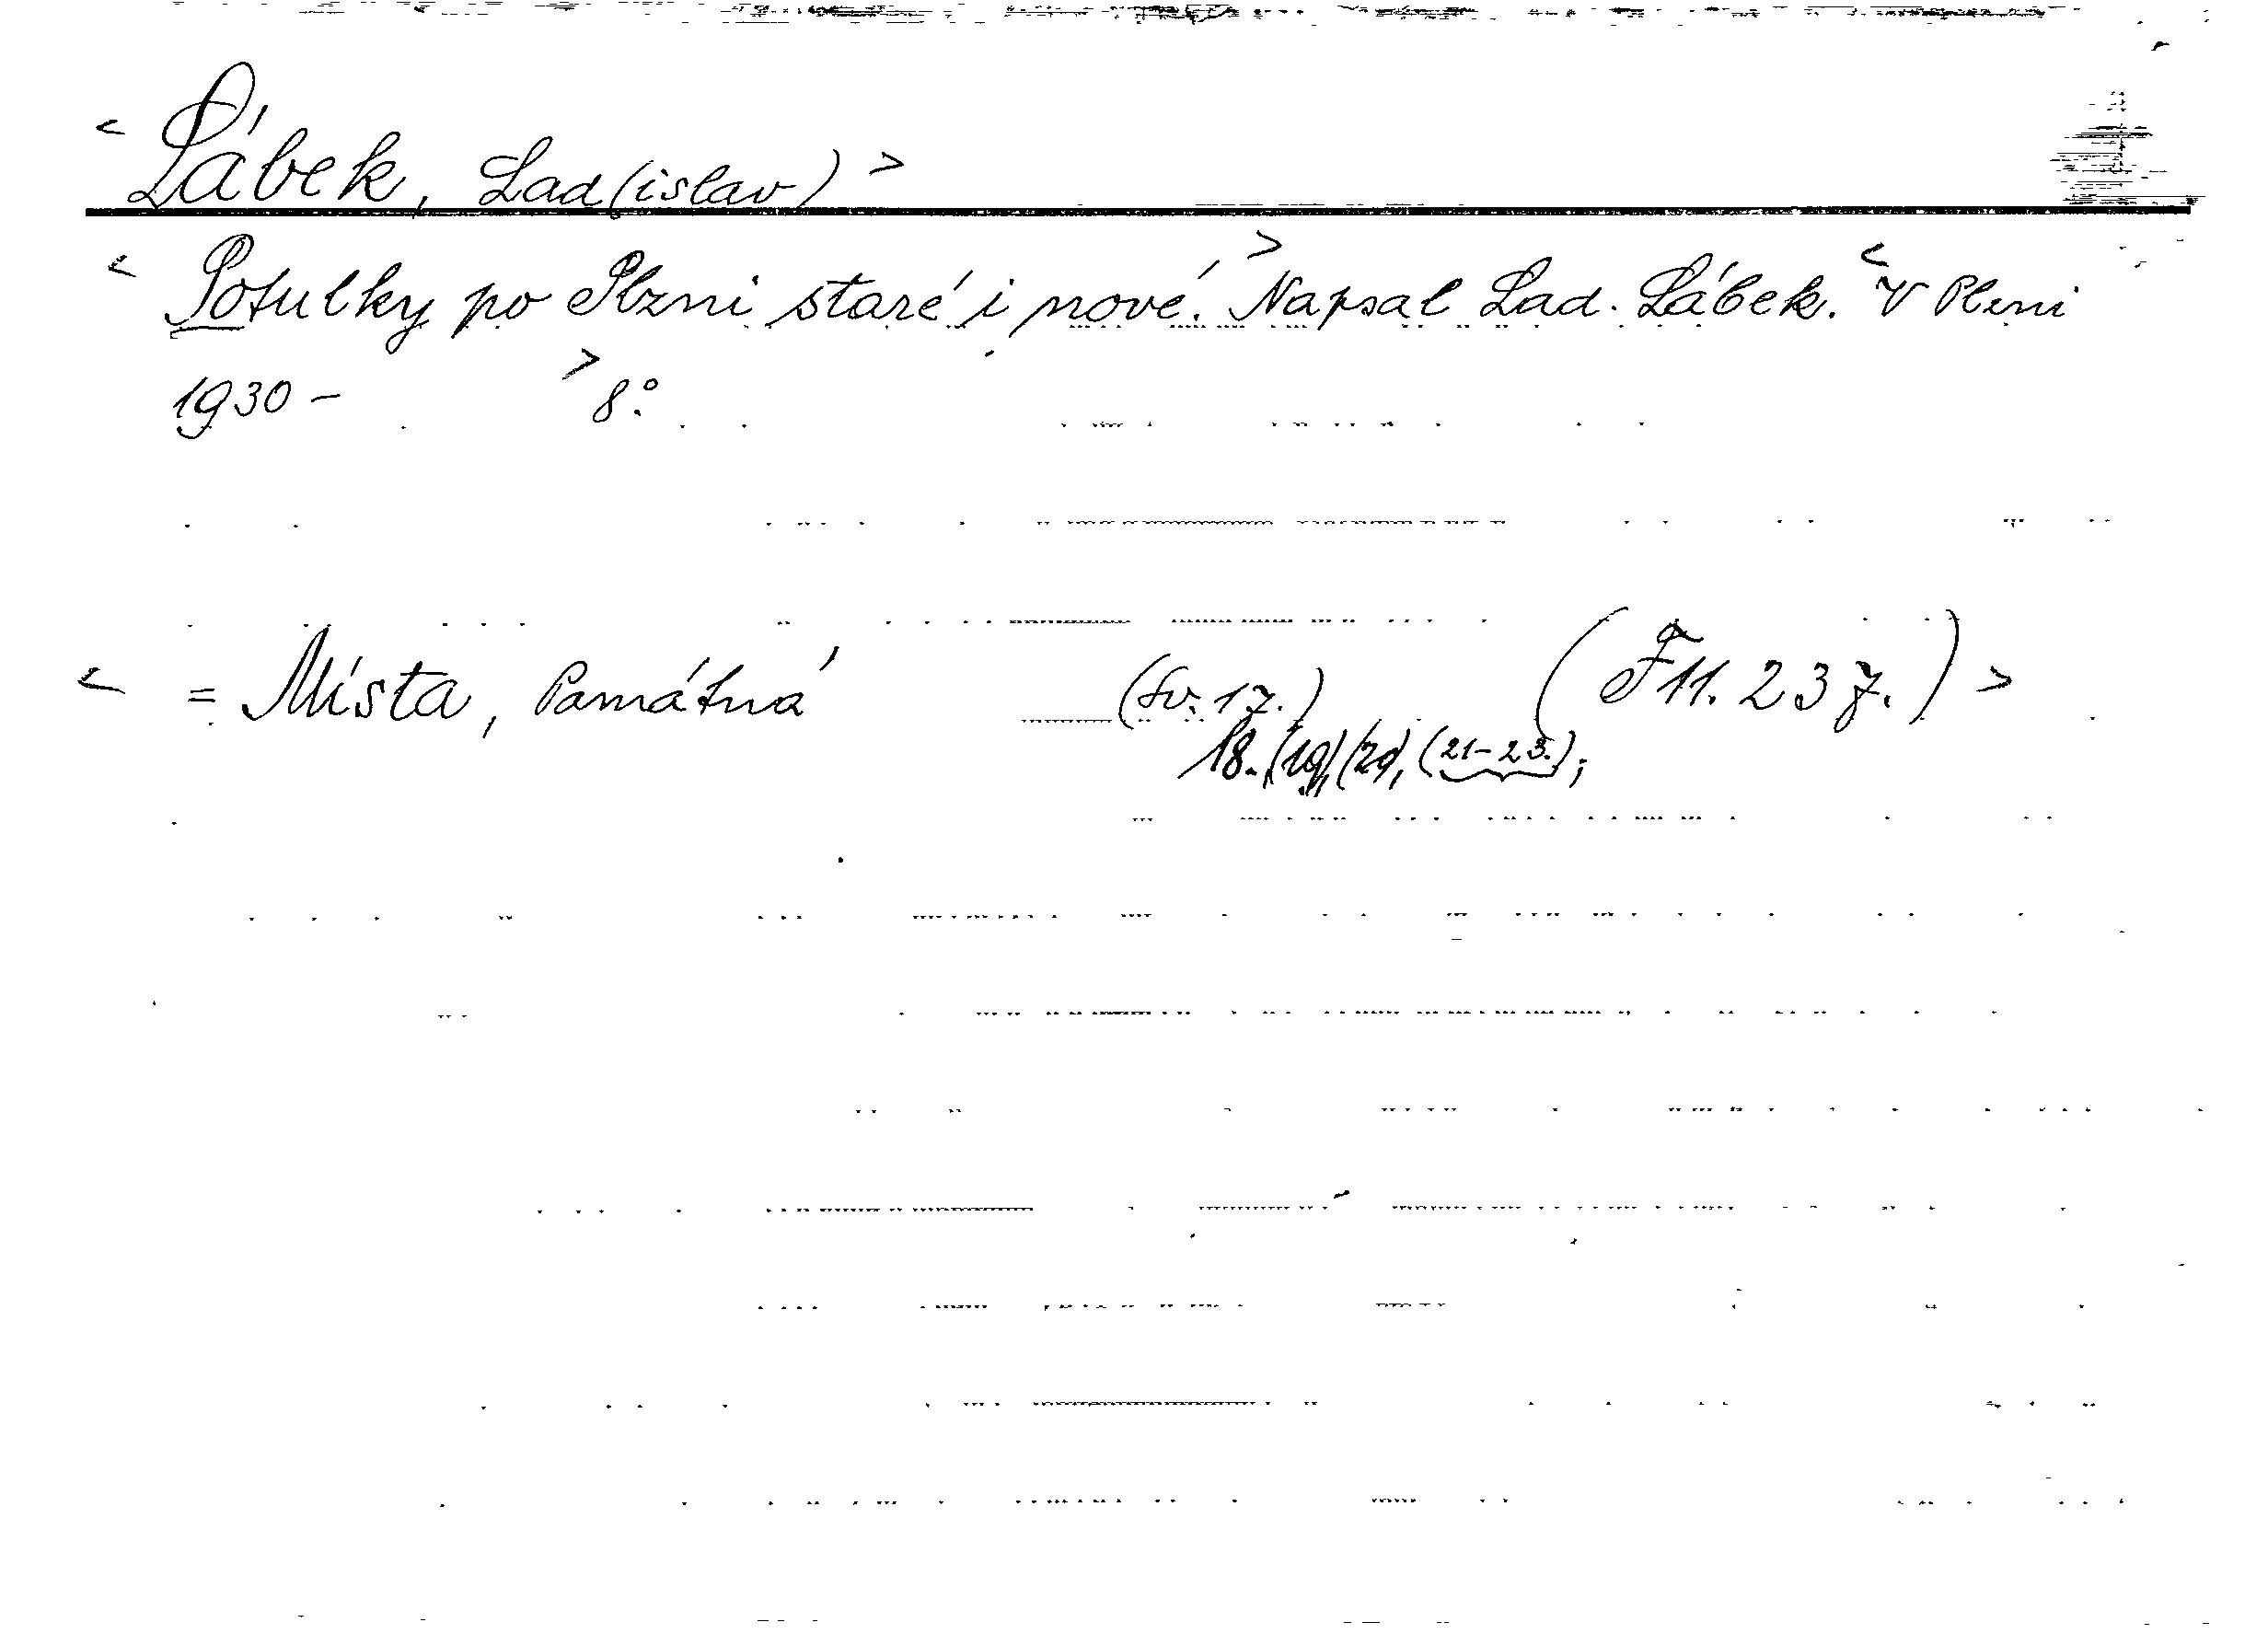 < Lábek, Lad(islav) >
< Potulky po Plzni staré i nové. > Napsal Lad. Lábek. < V Plzni
1930 – > 8°.
< = Místa, Památná (Sv. 17.) (F 11. 237.) >
18. (19), (20), (21–23.);